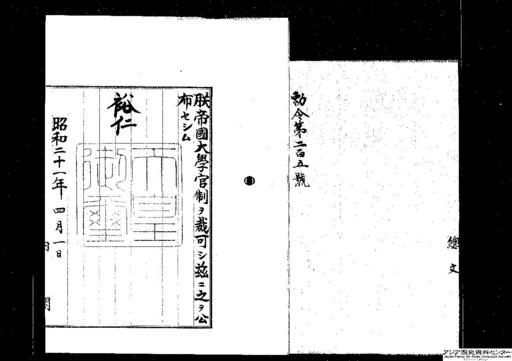 勅令第二百五號
朕帝國大學官制ヲ裁可シ茲ニ之ヲ公
布セシム
裕仁
天皇
御璽
昭和二十一年四月一日
總
文
アジア歴史資料センター